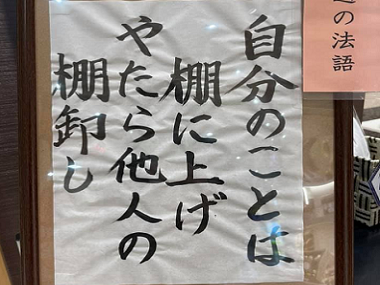 自分のことは
棚に上げ
やたら他人の
棚卸し
の法語